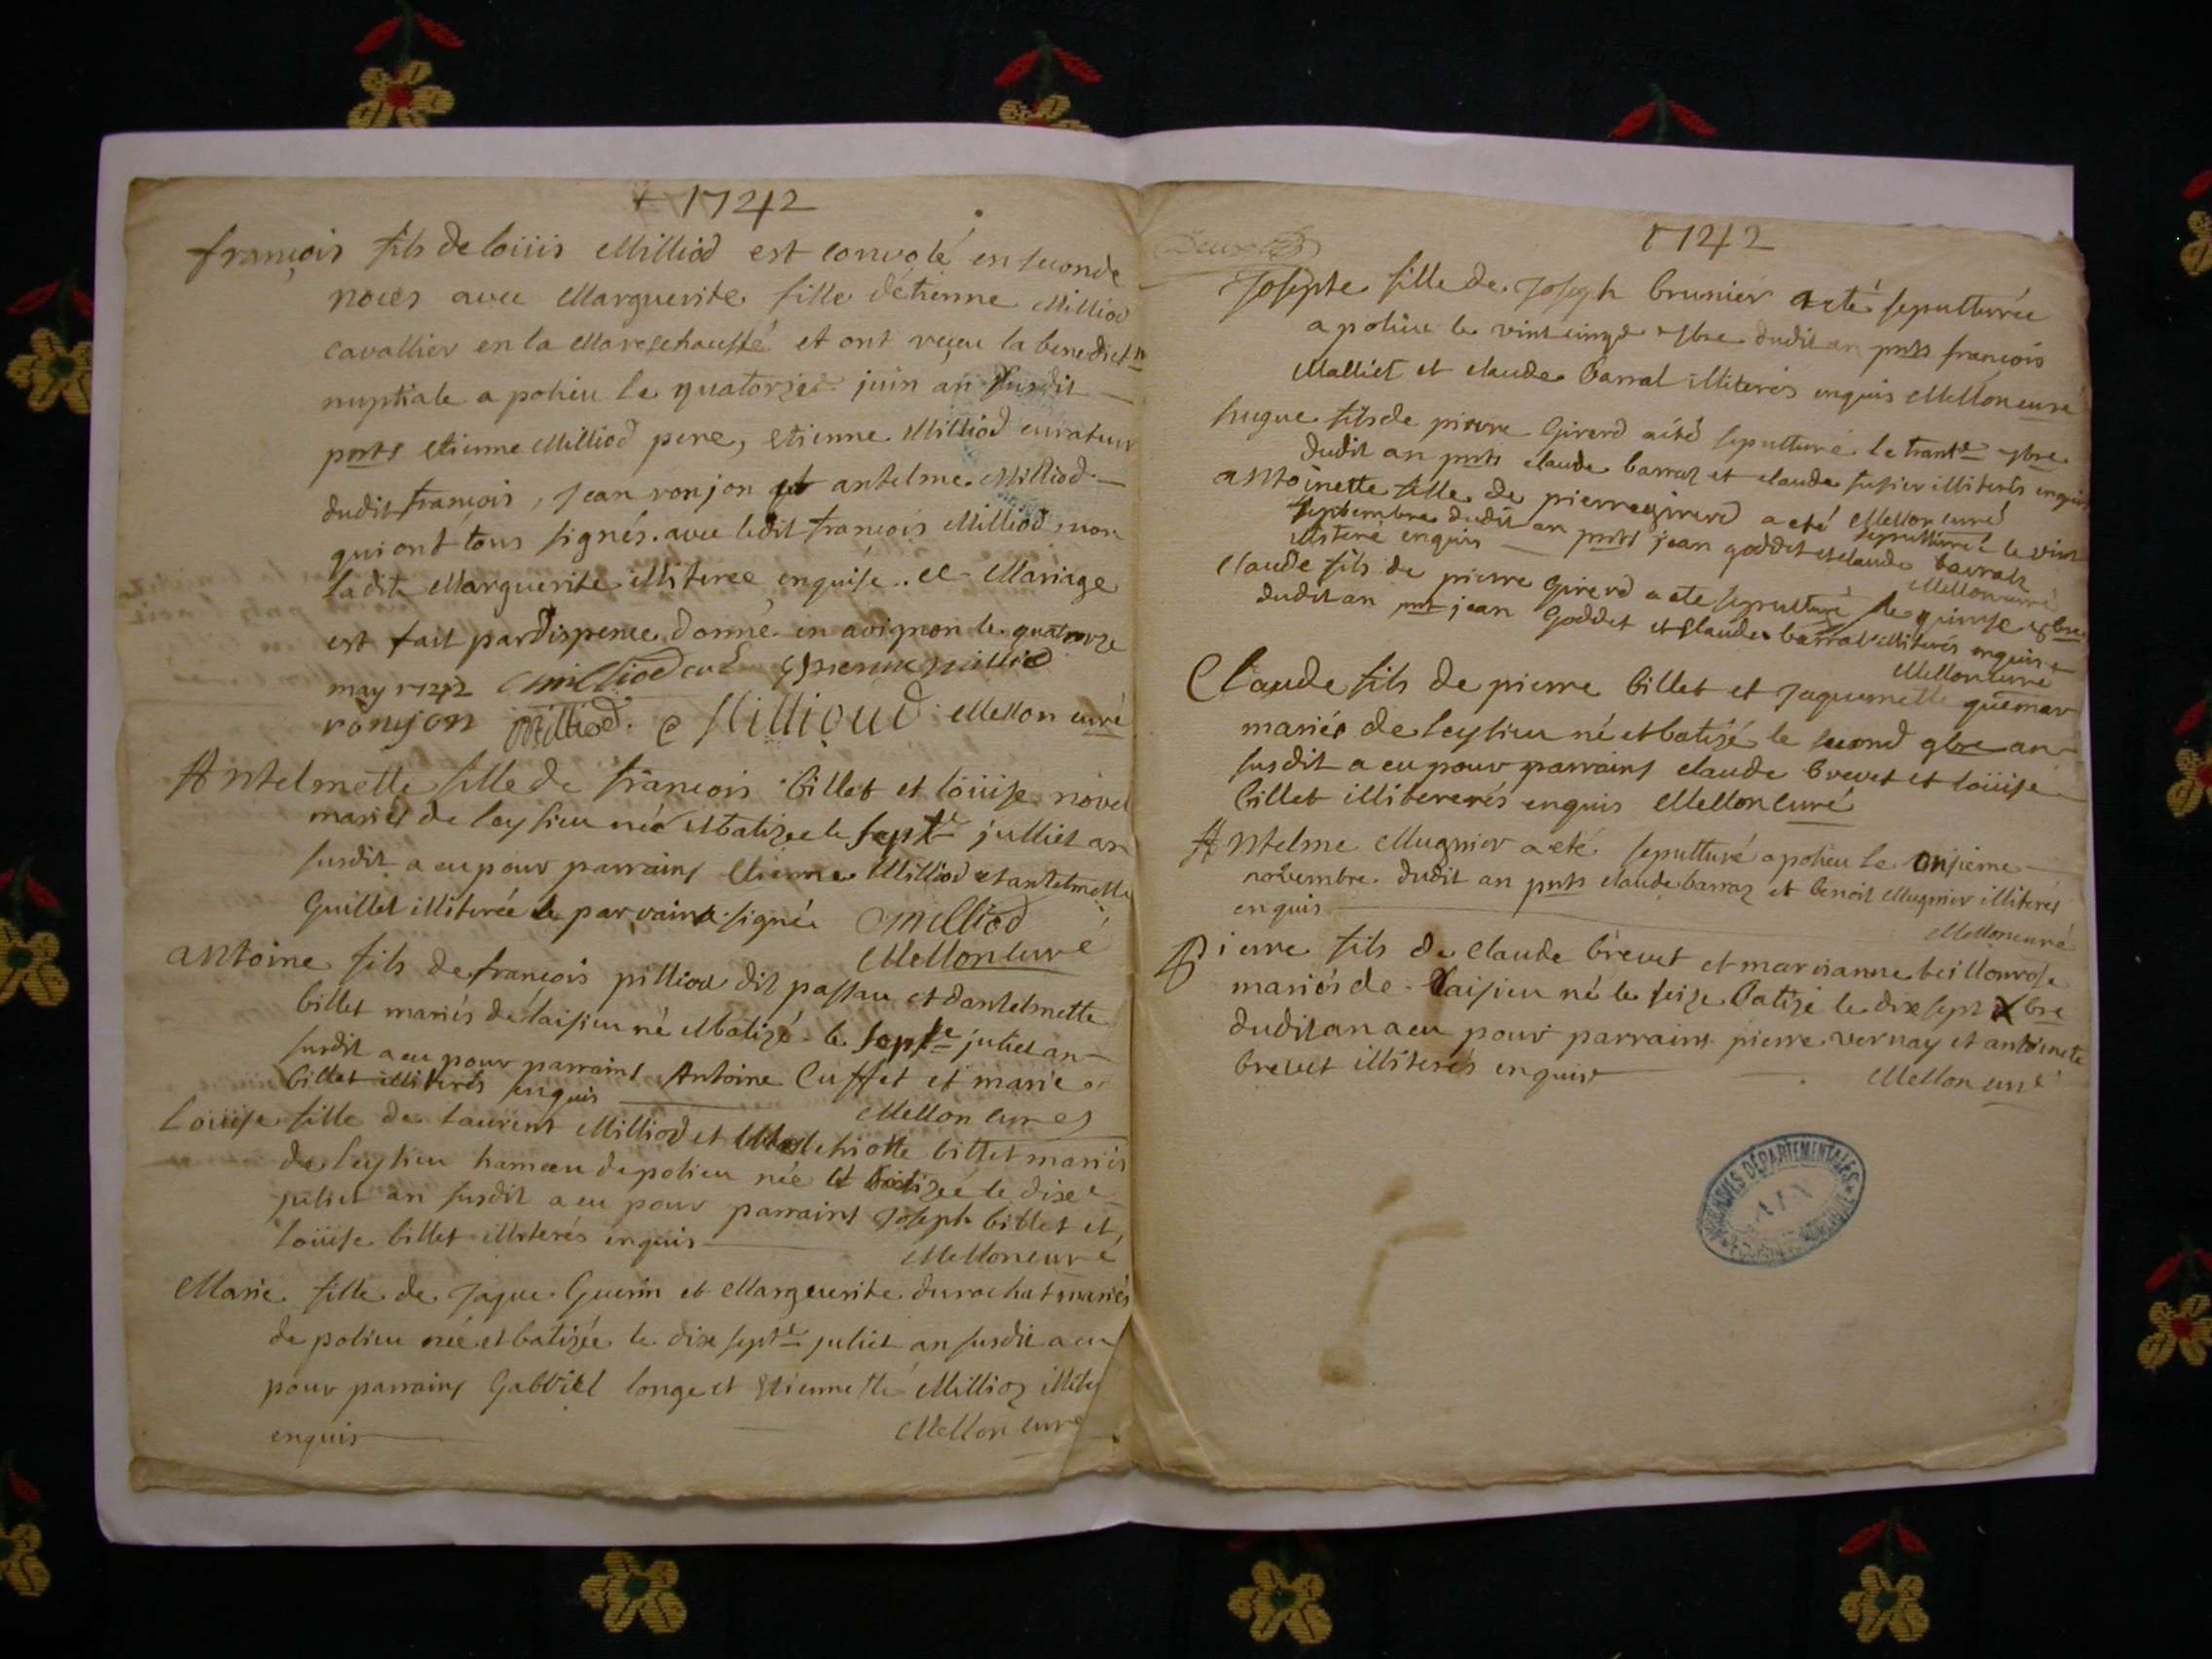 + 1742
françois fils de loüis Milliod est convolé en seconde
noces avec Marguerite fille d'étienne Milliod
cavallier en la Mareschaussé et ont reçeu la benedict.n
nuptiale a polieu le quatorze juin an susdit
pnts etienne Milliod pere, etienne Milliod curateur
dudit françois, Jean ronjon et antelme Milliod
qui ont tous signés avec ledit françois Milliod, non
ladite Marguerite illiteree enquise. ce Mariage
est fait par dispence donné en avignon le quatorze
may 1742 Milliod Etienne Milliod
ronjon Milliod. e Millioud Mellon curé
Antelmette fille de françois billet et loüise novel
mariés de leysieu née et batizée le sept.e julliet an
susdit a eu pour parrains Etienne Milliod et antelmette
Guillet illiterée le parrain signé Milliod
Mellon curé
Antoine fils de françois pilliou dit passau et d'antelmette
billet mariés de laisieu né et batizé le sept.e juliet an
susdit a eu pour parrains Antoine Cuffet et marie
billet illiterés enquis Mellon curé
Loüise fille de laurent Milliod et Melchiotte billet mariés
de leysieu hameau de polieu née et batizée le dixe
juliet an susdit a eu pour parrains Joseph billet et
loüise billet illiterés enquis
Mellon curé
Marie fille de Jaque Guerin et Marguerite durochat mariés
de polieu née et batizée le dix sept.e juliet an susdit a eu
pour parrains Gabriel longe et Etiennette Millioz illite
enquis Mellon curé
1742
Deux
Josephte fille de Joseph brunier a eté sepulturée
a polieu le vint cinq.e 7bre dudit an pnts françois
Malliet et claude barral illiterés enquis Mellon curé
hugue fils de pierre Girerd a eté sepulturé le trant.e 7bre
dudit an pnts claude barraz et claude fusier illiterés enquis
Mellon curé
antoinette fille de pierre girerd a eté sepulturée le vint
septembre dudit an pnts jean goddet et claude barraz
illiteré enquis Mellon curé
claude fils de pierre Girerd a eté sepulturé le quinse 8bre
dudit an pnt jean Goddet et claude barral illiterés enquis
Mellon curé
Claude fils de pierre billet et Jaquemette quemar
mariés de leysieu né et batizé le second 9bre an
susdit a eu pour parrains claude brevet et loüise
billet illitererés enquis Mellon curé
Antelme Mugnier a eté sepulturé a polieu le onsieme
novembre dudit an pnts claude barraz et benoit Mugnier illiterés
enquis
Mellon curé
Pierre fils de claude brevet et marianne
mariés de laisieu né le seize batizé le dix sept Xbre
dudit an a eu pour parrains pierre vernay et antoinette
brevet illiterés enquis Mellon curé
ARCHIVES DÉPARTEMENTALES
AIN